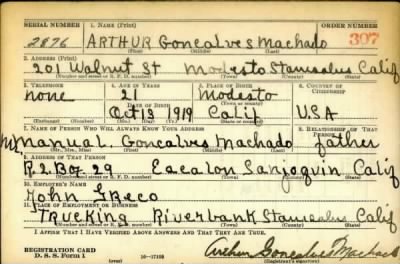 SERIAL NUMBER 1. NAME (Print) ORDER NUMBER
2876 ARTHUR Goncalves Machado 307
(First) (Middle) (Last)
2. ADDRESS (Print)
201 Walnut St Modesto Stanislus Calif
(Number and street or R. F. D. number) (Town) (County) (State)
3. TELEPHONE 4. AGE IN YEARS 5. PLACE OF BIRTH 6. COUNTRY OF CITIZENSHIP
none 21 Modesto
DATE OF BIRTH (Town or county)
Oct 13 1919 Calif U.S.A
(Exchange) (Number) (Mo.) (Day) (Yr.) (State or country)
7. NAME OF PERSON WHO WILL ALWAYS KNOW YOUR ADDRESS 8. RELATIONSHIP OF THAT PERSON
Manual. Goncalves Machado father
(Mr., Mrs., Miss) (First) (Middle) (Last)
9. ADDRESS OF THAT PERSON
R.2 Box 29 Escalon Sanjoquin Calif
(Number and street or R. F. D. number) (Town) (County) (State)
10. EMPLOYER'S NAME
John Greco
11. PLACE OF EMPLOYMENT OR BUSINESS
Trucking Riverbank Stanislus Calif
(Number and street or R. F. D. number) (Town) (County) (State)
I AFFIRM THAT I HAVE VERIFIED ABOVE ANSWERS AND THAT THEY ARE TRUE.
REGISTRATION CARD
D. S. S. Form 1 16—17105 Arthur Goncalves Machado
(Registrant's signature)